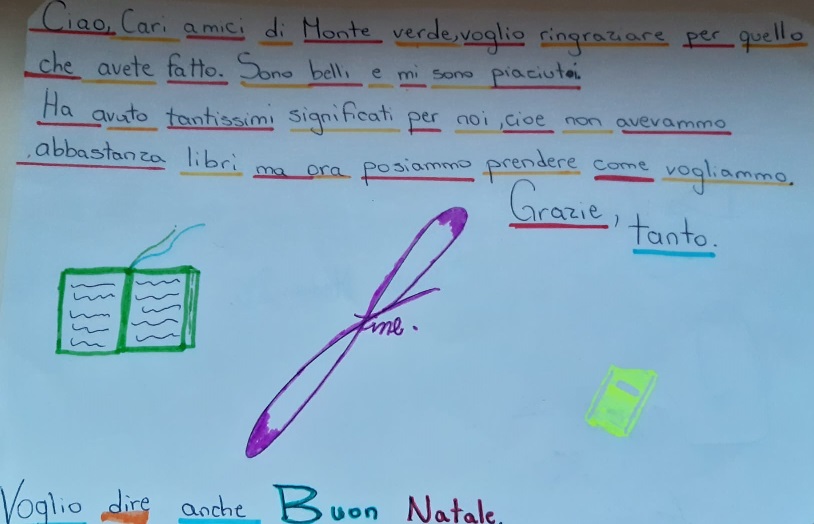 Ciao, Cari amici di Monte verde, voglio ringraziare per quello
che avete fatto. Sono belli e mi sono piaciuti.
Ha avuto tantissimi significati per noi, cioe non avevammo
abbastanza libri ma ora posiammo prendere come vogliammo.
Grazie, tanto.
fine.
Voglio dire anche Buon Natale.